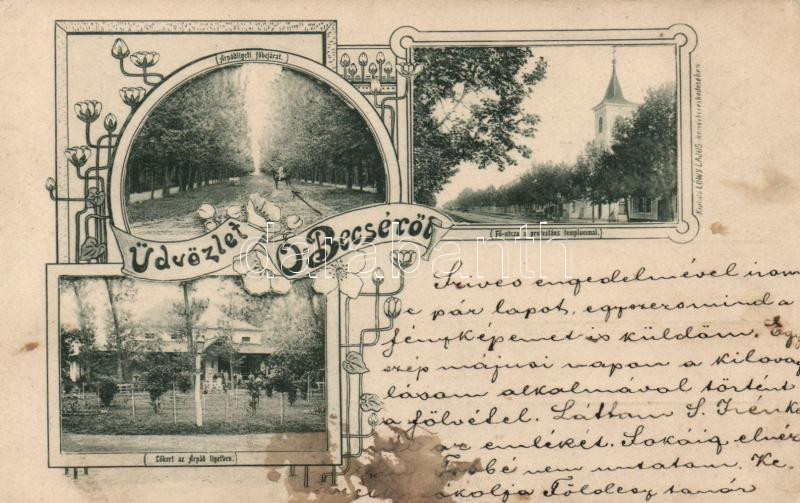 Árpádligeti főbejárat.
Üdvözlet Ó-Becséről
Fő-utcza a protestáns templommal.
Kiadja LŐWY LAJOS
Lőkert az Árpád ligetben.
darabanth.com
Szives engedelmével irom
e pár lapot, egyszersmind a
fényképemet is küldöm. Egy
szép májusi napon a kilovag
lásom alkalmával történt
a fölvétel. Láttam S. Irénke
az emlékét. Sokáig
Többé nem mutatom. Ke
Földesy tanár